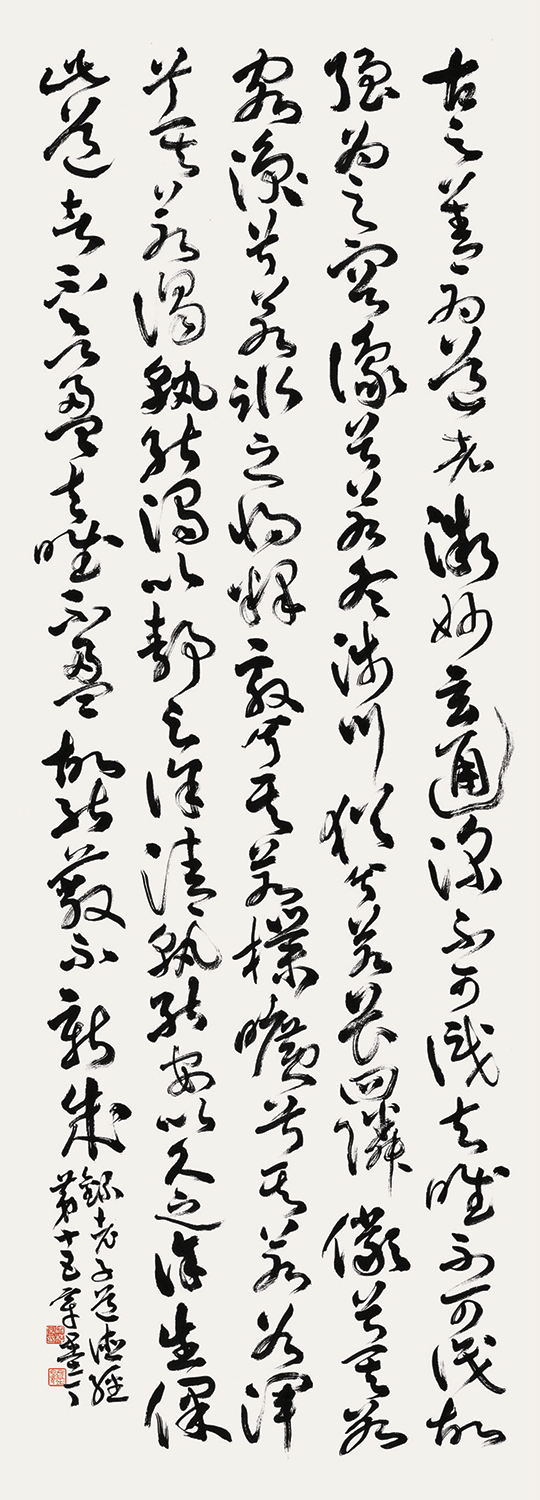 古之善為道者微妙玄通深不可識夫唯不可識故
強為之容豫兮若冬涉川猶兮若畏四鄰儼兮其若
客渙兮若冰之將釋敦兮其若樸曠兮其若谷渾
兮其若濁孰能濁以靜之徐清孰能安以久之徐生保
此道者不欲盈夫唯不盈故能蔽不新成
錄老子道德經
第十五章